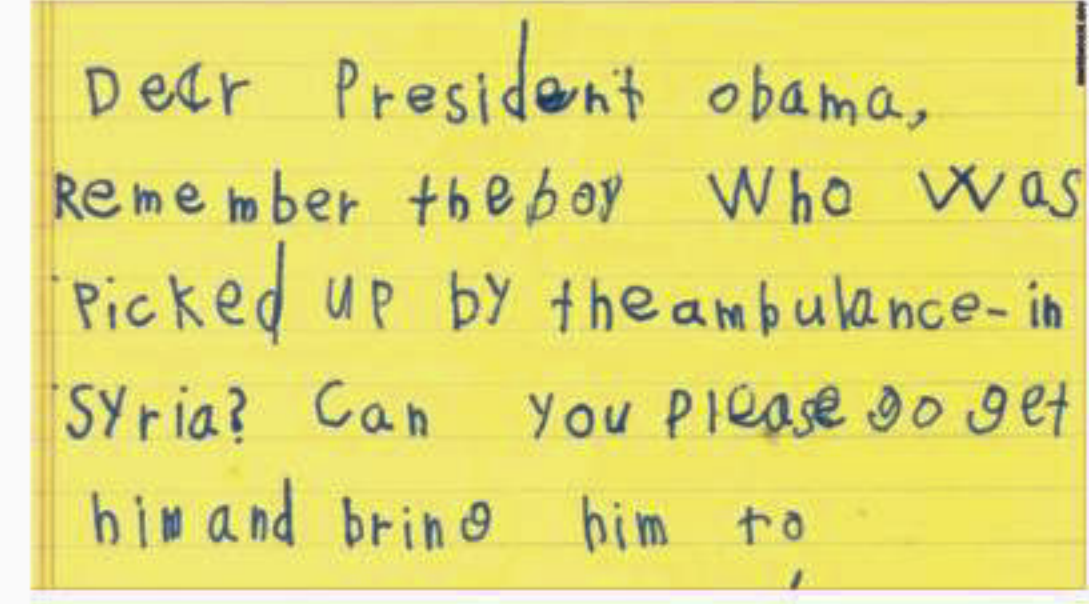 Dear President obama,
Remember the boy Who was
Picked up by the ambulance- in
Syria? Can you please go get
him and bring him to